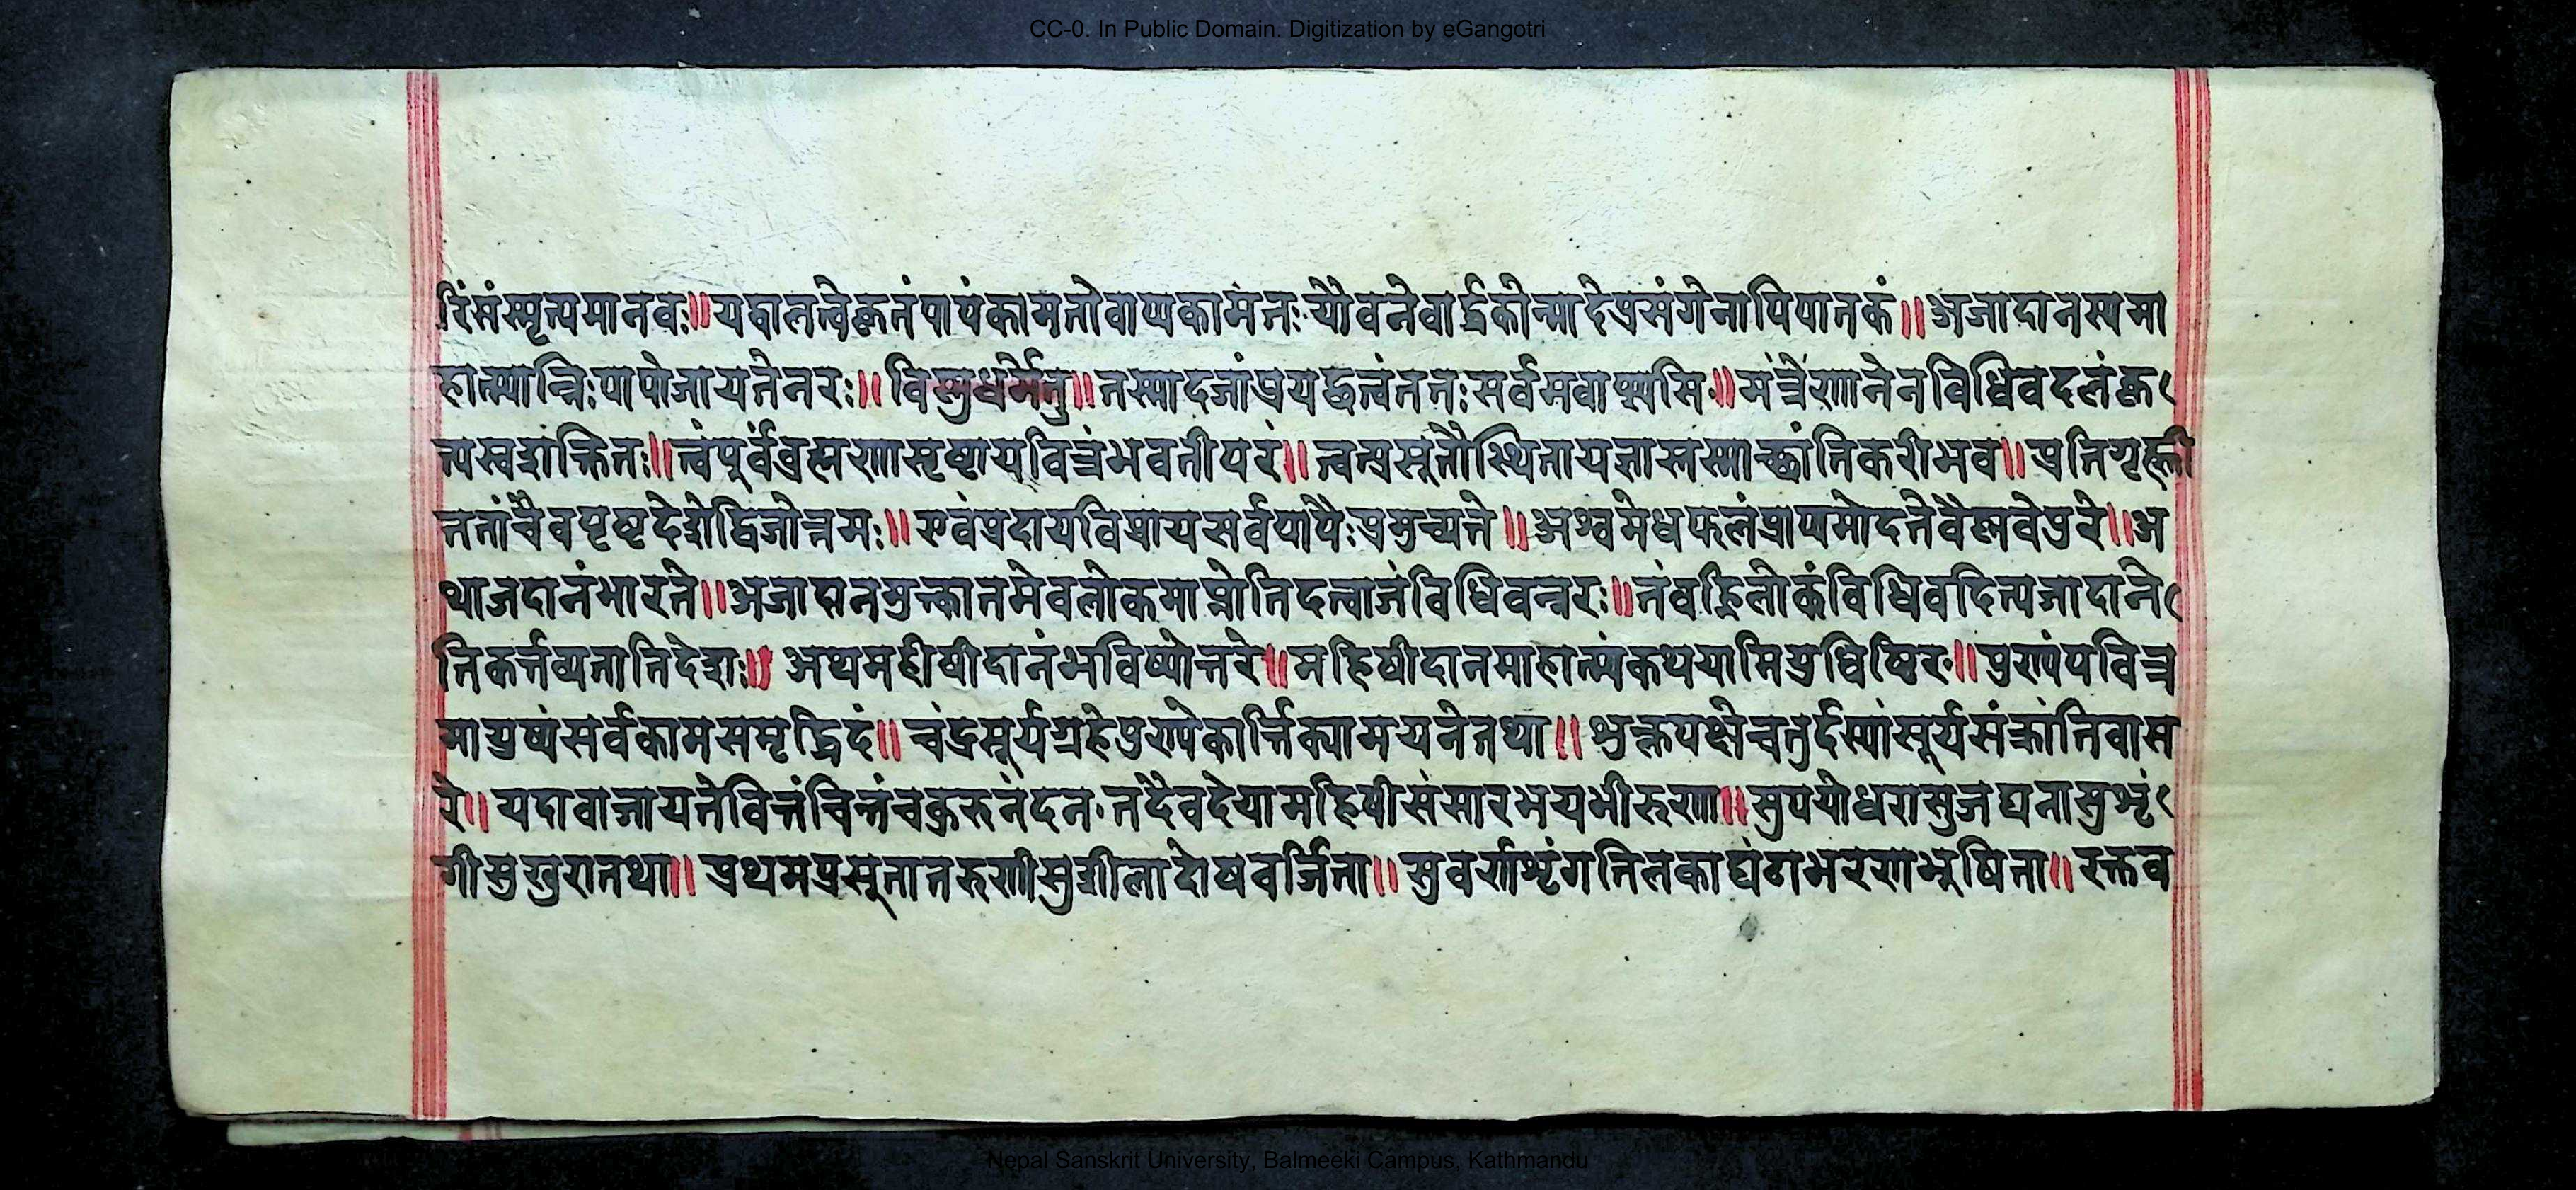 CC-0. In Public Domain. Digitization by eGangotri
रिंसंस्मृत्यमानवः॥यद्वालत्वेकृतंपापंकामतोवाप्यकामतः यौवनेवार्द्धकोन्मादेप्रसंगेनापिपातकं॥अजादानस्यमा
हात्म्यान्निःपापोजायतेनरः॥विस्नुधर्मेतु॥तस्मादजांप्रयछत्वंततःसर्वमवाप्स्यसि॥मंत्रेणानेनविधिवदलंकृ
त्यस्वशक्तितः॥त्वंपूर्वंब्रह्मणासृष्टापवित्रंभवतीपरं॥त्वत्प्रसूतौस्थितायज्ञास्तस्माच्छांतिकरीभव॥प्रतिगृह्णी
ततांचैवपृष्टदेशेद्विजोत्तमः॥एवंप्रदायविप्रायसर्वपापैःप्रमुच्यते॥अश्वमेधफलंप्राप्यमोदतेवैष्णवेपुरे॥अ
थाजदानंभारते॥अजादानमुक्त्वातमेवलोकमाप्नोतिदत्वाजंविधिवन्नरः॥तंवह्निलोकंविधिवदित्यजादाने
तिकर्त्तव्यतातिदेशः॥अथमहीषीदानंभविष्योत्तरे॥महिषीदानमाहात्म्यंकथयामियुधिष्ठिर॥पुण्यंपवित्र
मायुष्यंसर्वकामसमृद्धिदं॥चंद्रसूर्यग्रहेपुण्येकार्त्तिक्यामयनेतथा॥शुक्लपक्षेचतुर्दस्यांसूर्यसंक्रांतिवास
रे॥यदावाजायतेवित्तंचित्तंचकुरुनंदन तदैवदेयामहिषीसंसारभयभीरुणा॥सुपयोधरासुजघनासुशृं
गीसुखुरातथा॥प्रथमप्रसूतातरुणीसुशीलादोषवर्जिता॥सुवर्णशृंगतिलकाघंटाभरणभूषिता॥रक्तव
Nepal Sanskrit University, Balmeeki Campus, Kathmandu